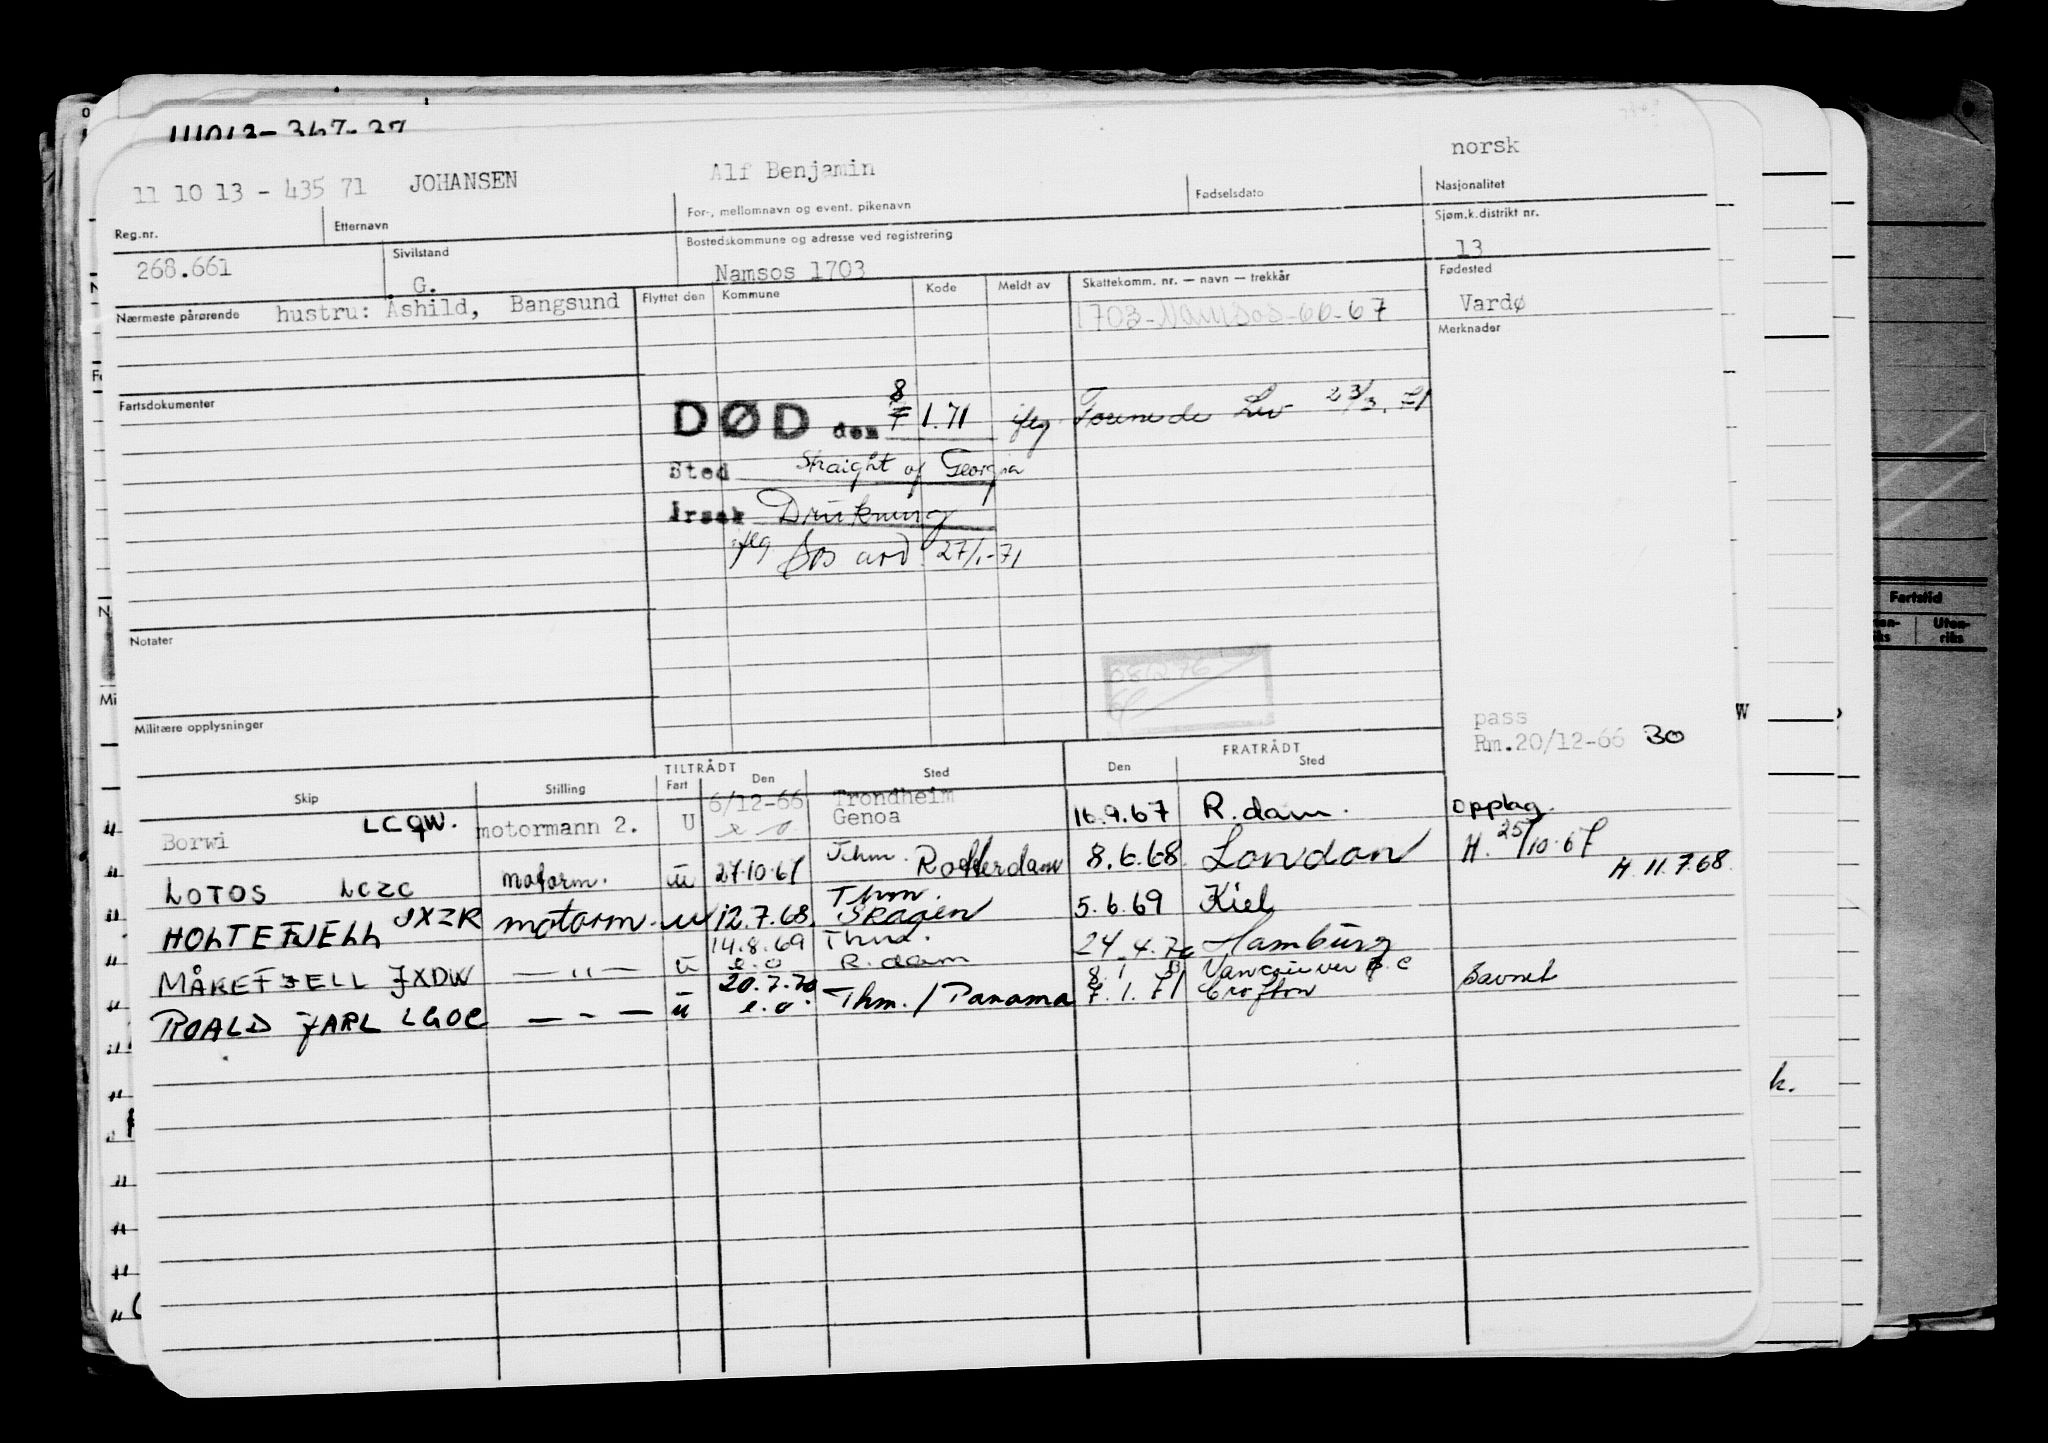 norsk
11 10 13 - 435 71 JOHANSEN Alf Benjamin
Reg.nr. Etternavn For-, mellomnavn og event. pikenavn Fødselsdato Nasjonalitet
268.661 Sivilstand G. Bostedskommune og adresse ved registrering Namsos 1703 Sjøm.k.distrikt nr. 13
Nærmeste pårørende hustru: Åshild, Bangsund Flyttet den Kommune Kode Meldt av Skattekomm. nr. — navn — trekkår Fødested
1703-Namsos-60-67 Vardø
Merknader
Fartsdokumenter
DØD den 8/7 1.71 ifleg 23/3.71
Sted Straight of Georgia
Årsak Drukning
ifleg 27/1-71
Notater
Militære opplysninger
pass
Rm.20/12-66 BO
TILTRÅDT FRATRÅDT
Skip Stilling Fart Den Sted Den Sted
Borwi LCQW. motormann 2. U 6/12-66 Trondheim Genoa 16.9.67 R.dam. opplag.
LOTOS LCZC motorm. u 27.10.67 Thm. Rotterdam 8.6.68 London H. 25/10.67 H. 11.7.68
HOLTEFJELL JXZR motorm. u 12.7.68 Thm. SKAGEN 5.6.69 Kiel
MÅKEFJELL JXDW — " — u 14.8.69 e.o Thm. R.dam 24.4.70 Hamburg
ROALD JARL LGOC — - — u 20.7.70 e.o. Thm. / Panama 8.1.71 7.1.71 Vancouver B.C Crofton Savnet
Fartstid
Uten-
riks
W
k.